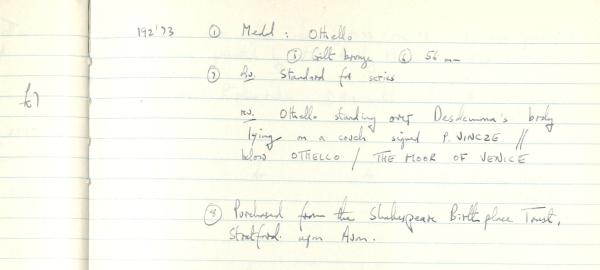 192'73 ① Medal : Othello
⑤ Gilt bronze ⑥ 56 mm
⑦ obv. Standard for series
rev. Othello standing over Desdemona's body
lying on a couch signed P. VINCZE //
below OTHELLO / THE MOOR OF VENICE
⑧ Purchased from the Shakespeare Birthplace Trust,
Stratford upon Avon.